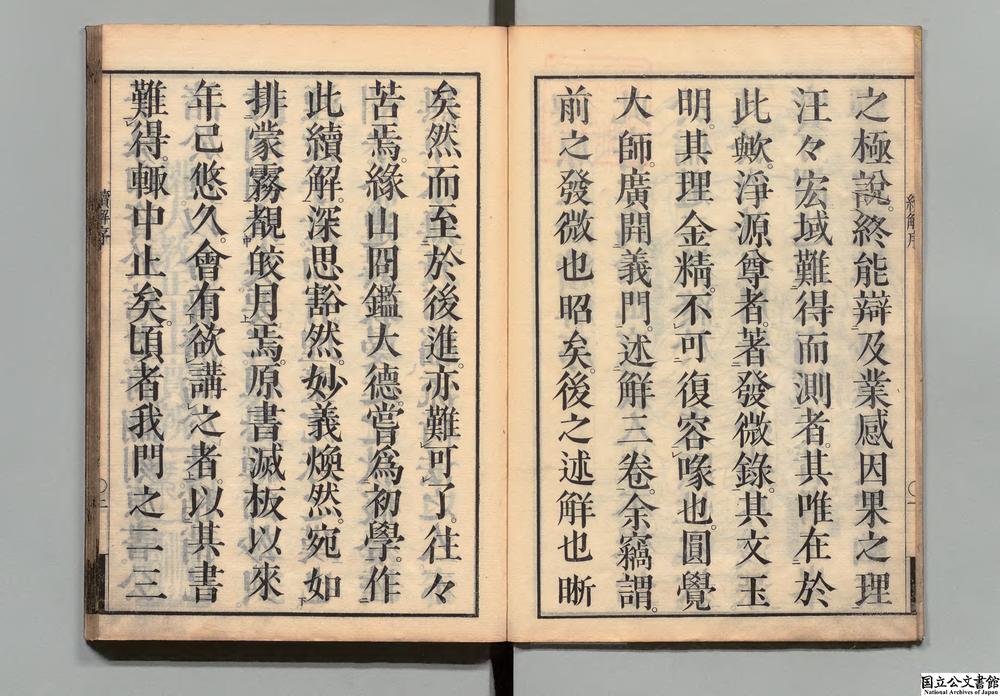 續解序
之極說。終能辯及業感因果之理
汪々宏域難得而測者。其唯在於
此歟。淨源尊者。著發微錄。其文玉
明。其理金精。不可復容喙也。圓覺
大師。廣開義門。述解三卷。余竊謂。
前之發微也昭矣。後之述解也晰
矣然而至於後進。亦難可了。往々
苦焉。緣山冏鑑大德嘗爲初學。作
此續解。深思豁然。妙義煥然。宛如
排蒙霧覩皎月焉。原書滅板以來
年已悠久。會有欲講之者。以其書
難得。輙中止矣。頃者我門之二三
續解序
〇二
国立公文書館
National Archives of Japan